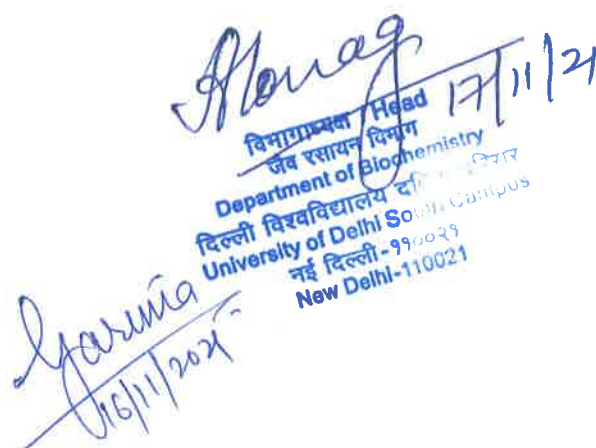 17/11/21
विभागाध्यक्ष / Head
जैव रसायन विभाग
Department of Biochemistry
दिल्ली विश्वविद्यालय दक्षिण परिसर
University of Delhi South Campus
नई दिल्ली-११००२१
New Delhi-110021
Garima
16/11/2021